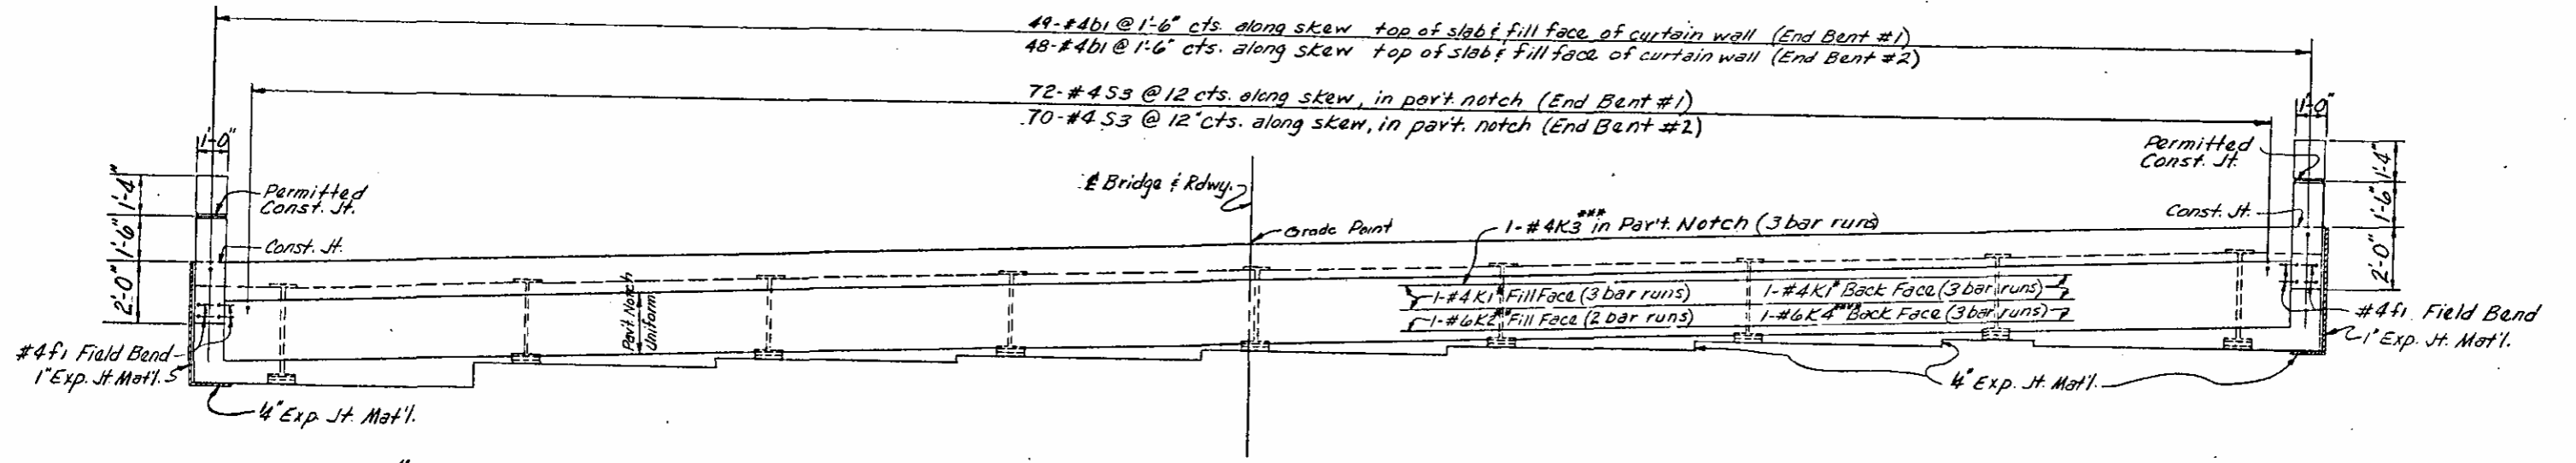 49-#4b1 @ 1'-6" cts. along skew top of slab & fill face of curtain wall (End Bent #1)
48-#4b1 @ 1'-6" cts. along skew top of slab & fill face of curtain wall (End Bent #2)
72-#4 S3 @ 12 cts. along skew, in pav't. notch (End Bent #1)
70-#4 S3 @ 12" cts. along skew, in pav't. notch (End Bent #2)
1'-0"
1'-0"
Permitted
Const. Jt.
Permitted
Const. Jt.
1'-4"
1'-6"
2'-0"
1'-4"
1'-6"
2'-0"
℄ Bridge & Rdwy.
Grade Point
1-#4K3*** in Pav't. Notch (3 bar runs)
Const. Jt.
Const. Jt.
Pav't. Notch
Uniform
1-#4K1* Fill Face (3 bar runs)
1-#4K1* Back Face (3 bar runs)
1-#6K2** Fill Face (2 bar runs)
1-#6K4*** Back Face (3 bar runs)
#4f1 Field Bend
1" Exp. Jt. Mat'l.
#4f1 Field Bend
1" Exp. Jt. Mat'l.
¼" Exp. Jt. Mat'l.
¼" Exp. Jt. Mat'l.